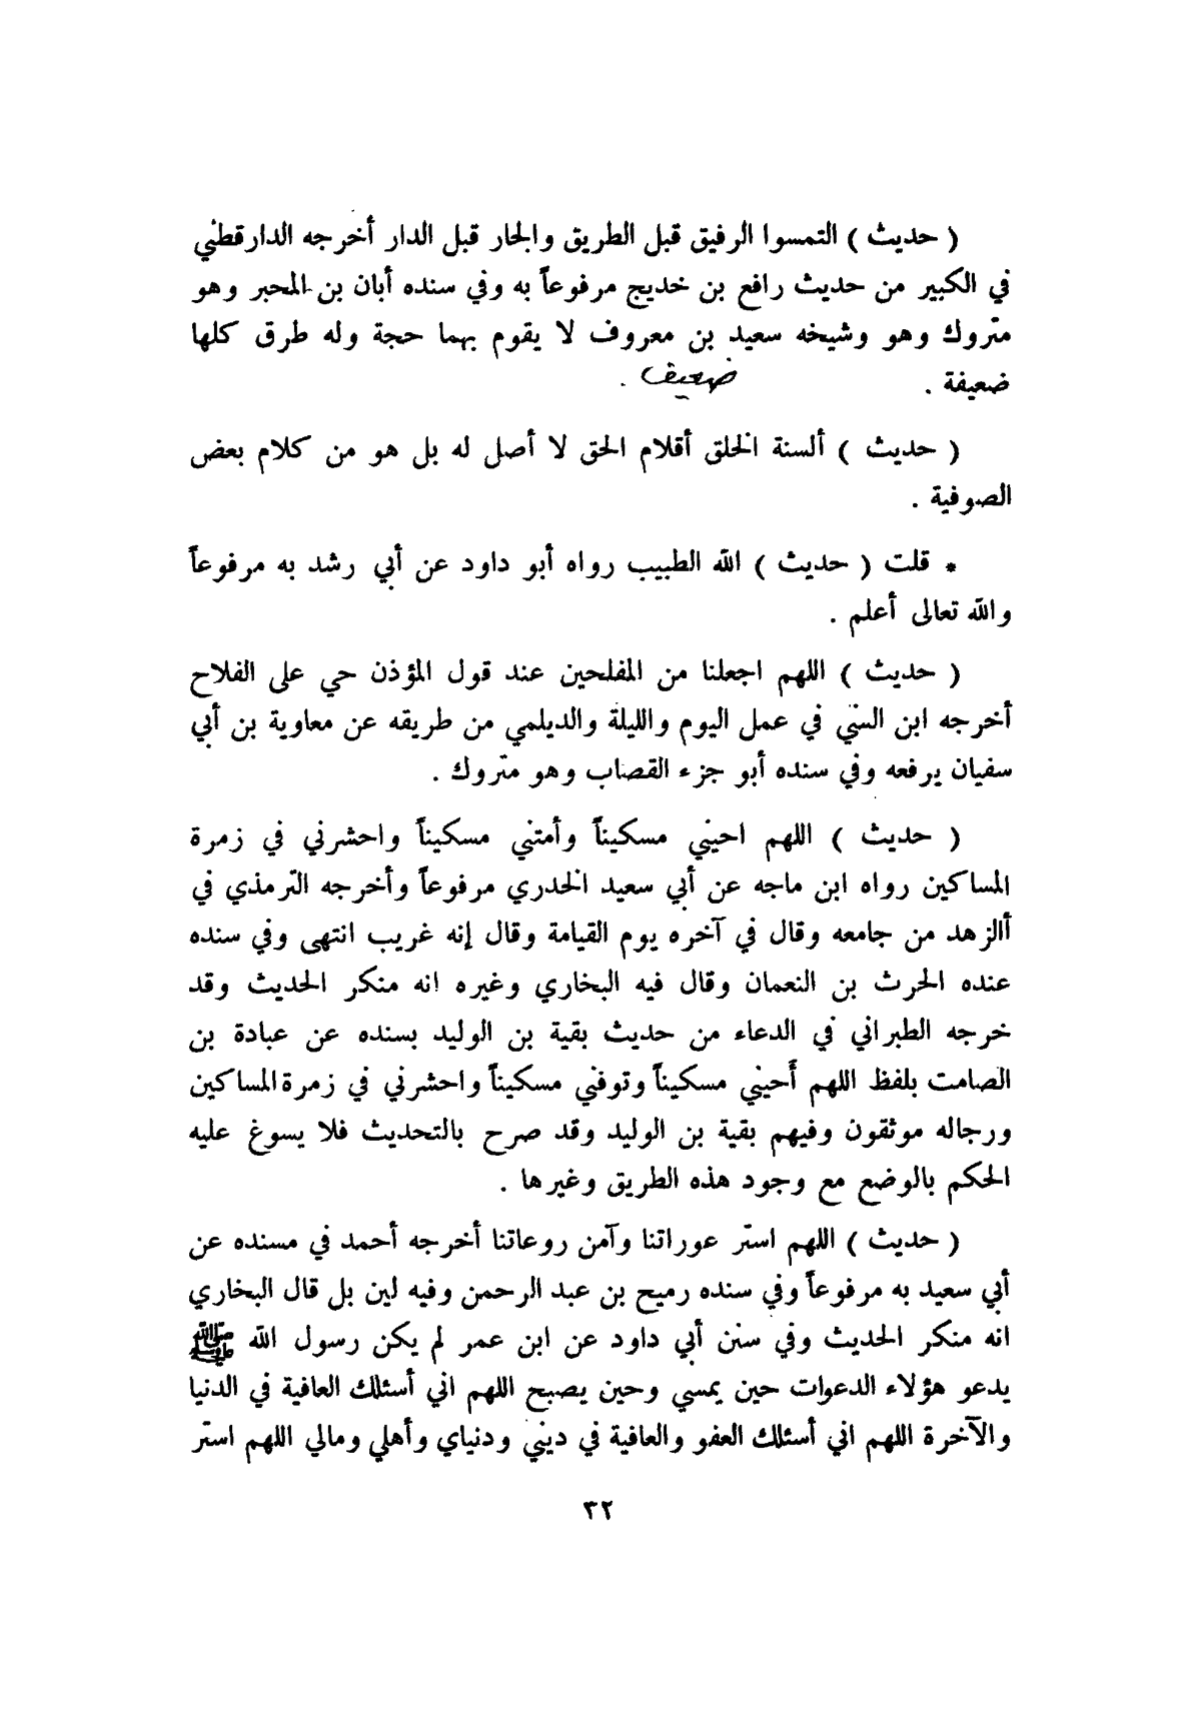 ( حديث ) التمسوا الرفيق قبل الطريق والجار قبل الدار أخرجه الدارقطني
في الكبير من حديث رافع بن خديج مرفوعاً به وفي سنده أبان بن المحبر وهو
متروك وهو وشيخه سعيد بن معروف لا يقوم بهما حجة وله طرق كلها
ضعيفة . ضعيف .
( حديث ) ألسنة الخلق أقلام الحق لا أصل له بل هو من كلام بعض
الصوفية .
* قلت ( حديث ) الله الطبيب رواه أبو داود عن أبي رشد به مرفوعاً
والله تعالى أعلم .
( حديث ) اللهم اجعلنا من المفلحين عند قول المؤذن حي على الفلاح
أخرجه ابن السني في عمل اليوم والليلة والديلمي من طريقه عن معاوية بن أبي
سفيان يرفعه وفي سنده أبو جزء القصاب وهو متروك .
( حديث ) اللهم احيني مسكيناً وأمتني مسكيناً واحشرني في زمرة
المساكين رواه ابن ماجه عن أبي سعيد الخدري مرفوعاً وأخرجه الترمذي في
أالزهد من جامعه وقال في آخره يوم القيامة وقال إنه غريب انتهى وفي سنده
عنده الحرث بن النعمان وقال فيه البخاري وغيره انه منكر الحديث وقد
خرجه الطبراني في الدعاء من حديث بقية بن الوليد بسنده عن عبادة بن
الصامت بلفظ اللهم أَحيني مسكيناً وتوفني مسكيناً واحشرني في زمرة المساكين
ورجاله موثقون وفيهم بقية بن الوليد وقد صرح بالتحديث فلا يسوغ عليه
الحكم بالوضع مع وجود هذه الطريق وغيرها .
( حديث ) اللهم استر عوراتنا وآمن روعاتنا أخرجه أحمد في مسنده عن
أبي سعيد به مرفوعاً وفي سنده رميح بن عبد الرحمن وفيه لين بل قال البخاري
انه منكر الحديث وفي سنن أبي داود عن ابن عمر لم يكن رسول الله ﷺ
يدعو هؤلاء الدعوات حين يمسي وحين يصبح اللهم اني أسئلك العافية في الدنيا
والآخرة اللهم اني أسئلك العفو والعافية في ديني ودنياي وأهلي ومالي اللهم استر
٣٢